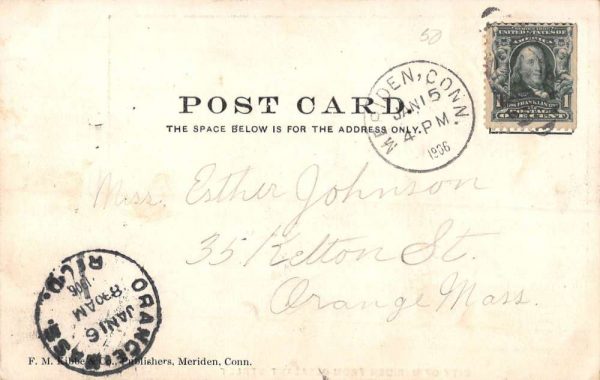 50
UNITED STATES OF
AMERICA
FRANKLIN
1 POSTAGE 1
ONE CENT
MERIDEN, CONN.
JAN 15
4 - PM
1906
POST CARD.
THE SPACE BELOW IS FOR THE ADDRESS ONLY.
Miss. Esther Johnson
35 Kelton St.
Orange Mass.
ORANGE MASS.
JAN 16
8 30 AM
1906
REC'D.
F. M. Kibbe & Co., Publishers, Meriden, Conn.